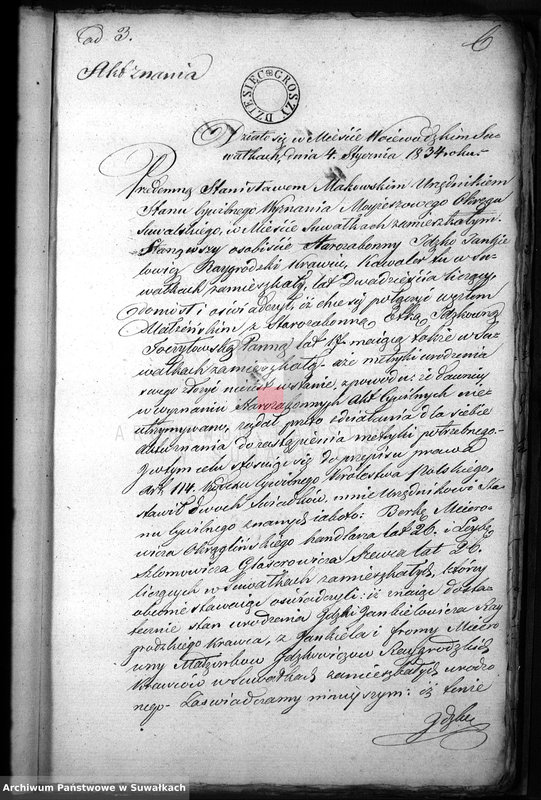 ad 3.
6
Akt znania
DZIESIĘC GROSZY
Działo się w Mieście Woiewodzkim Su-
wałkach dnia 4. Stycznia 1834 roku.
Przedemną Stanisławem Makowskim Urzędnikiem
Stanu Cywilnego Wyznania Moyżeszowego Okręgu
Suwalskiego, w Mieście Suwałkach zamieszkałym.
Stanąwszy osobiście Starozakonny Jdzko Jankie
lowicz Raygrodzki Krawiec, Kawaler tu w Su-
wałkach zamieszkały, lat Dwadzieścia liczący,
i oświadczył, iż chce się połączyć węzłem
Małżeńskim z Starozakonną Etką Jdzkowną
Panną lat 17. maiącą także w Su-
wałkach zamieszkałą. aże metryki urodzenia
swego złożyć nieiest w stanie, z powodu: że dawniey
w wyznaniu Starozakonnych Akt Cywilnych nie
utrzymywano, żądał przeto zdziałania dla siebie
aktu znania do zastąpienia metryki potrzebnego.
gwoli tym celu stosuiąc się do przepisu prawa
art. 114. Kodexu Cywilnego Królestwa Polskiego,
stawił dwoch Swiadków, mnie Urzędnikowi Sta
nu Cywilnego znanych iakoto: Berkę Meiero-
wicza handlarza lat 26. i Leybę
Szlomowicza Glaserowicza Szewca lat 26.
liczących w Suwałkach zamieszkałych, którzy
obecnie stawaiąc oświadczyli: iż znaią dosta
tecznie stan urodzenia Jdzki Jankielowicza Ray
grodzkiego Krawca, z Jankiela i Fromy Meiero
wny Małżonków Jdzkowiczow Raygrodzkich
Krawców w Suwałkach zamieszkałych urodzo
nego. Zaświadczamy ninieyszym: iż tenże
Jdzko
Archiwum Państwowe w Suwałkach